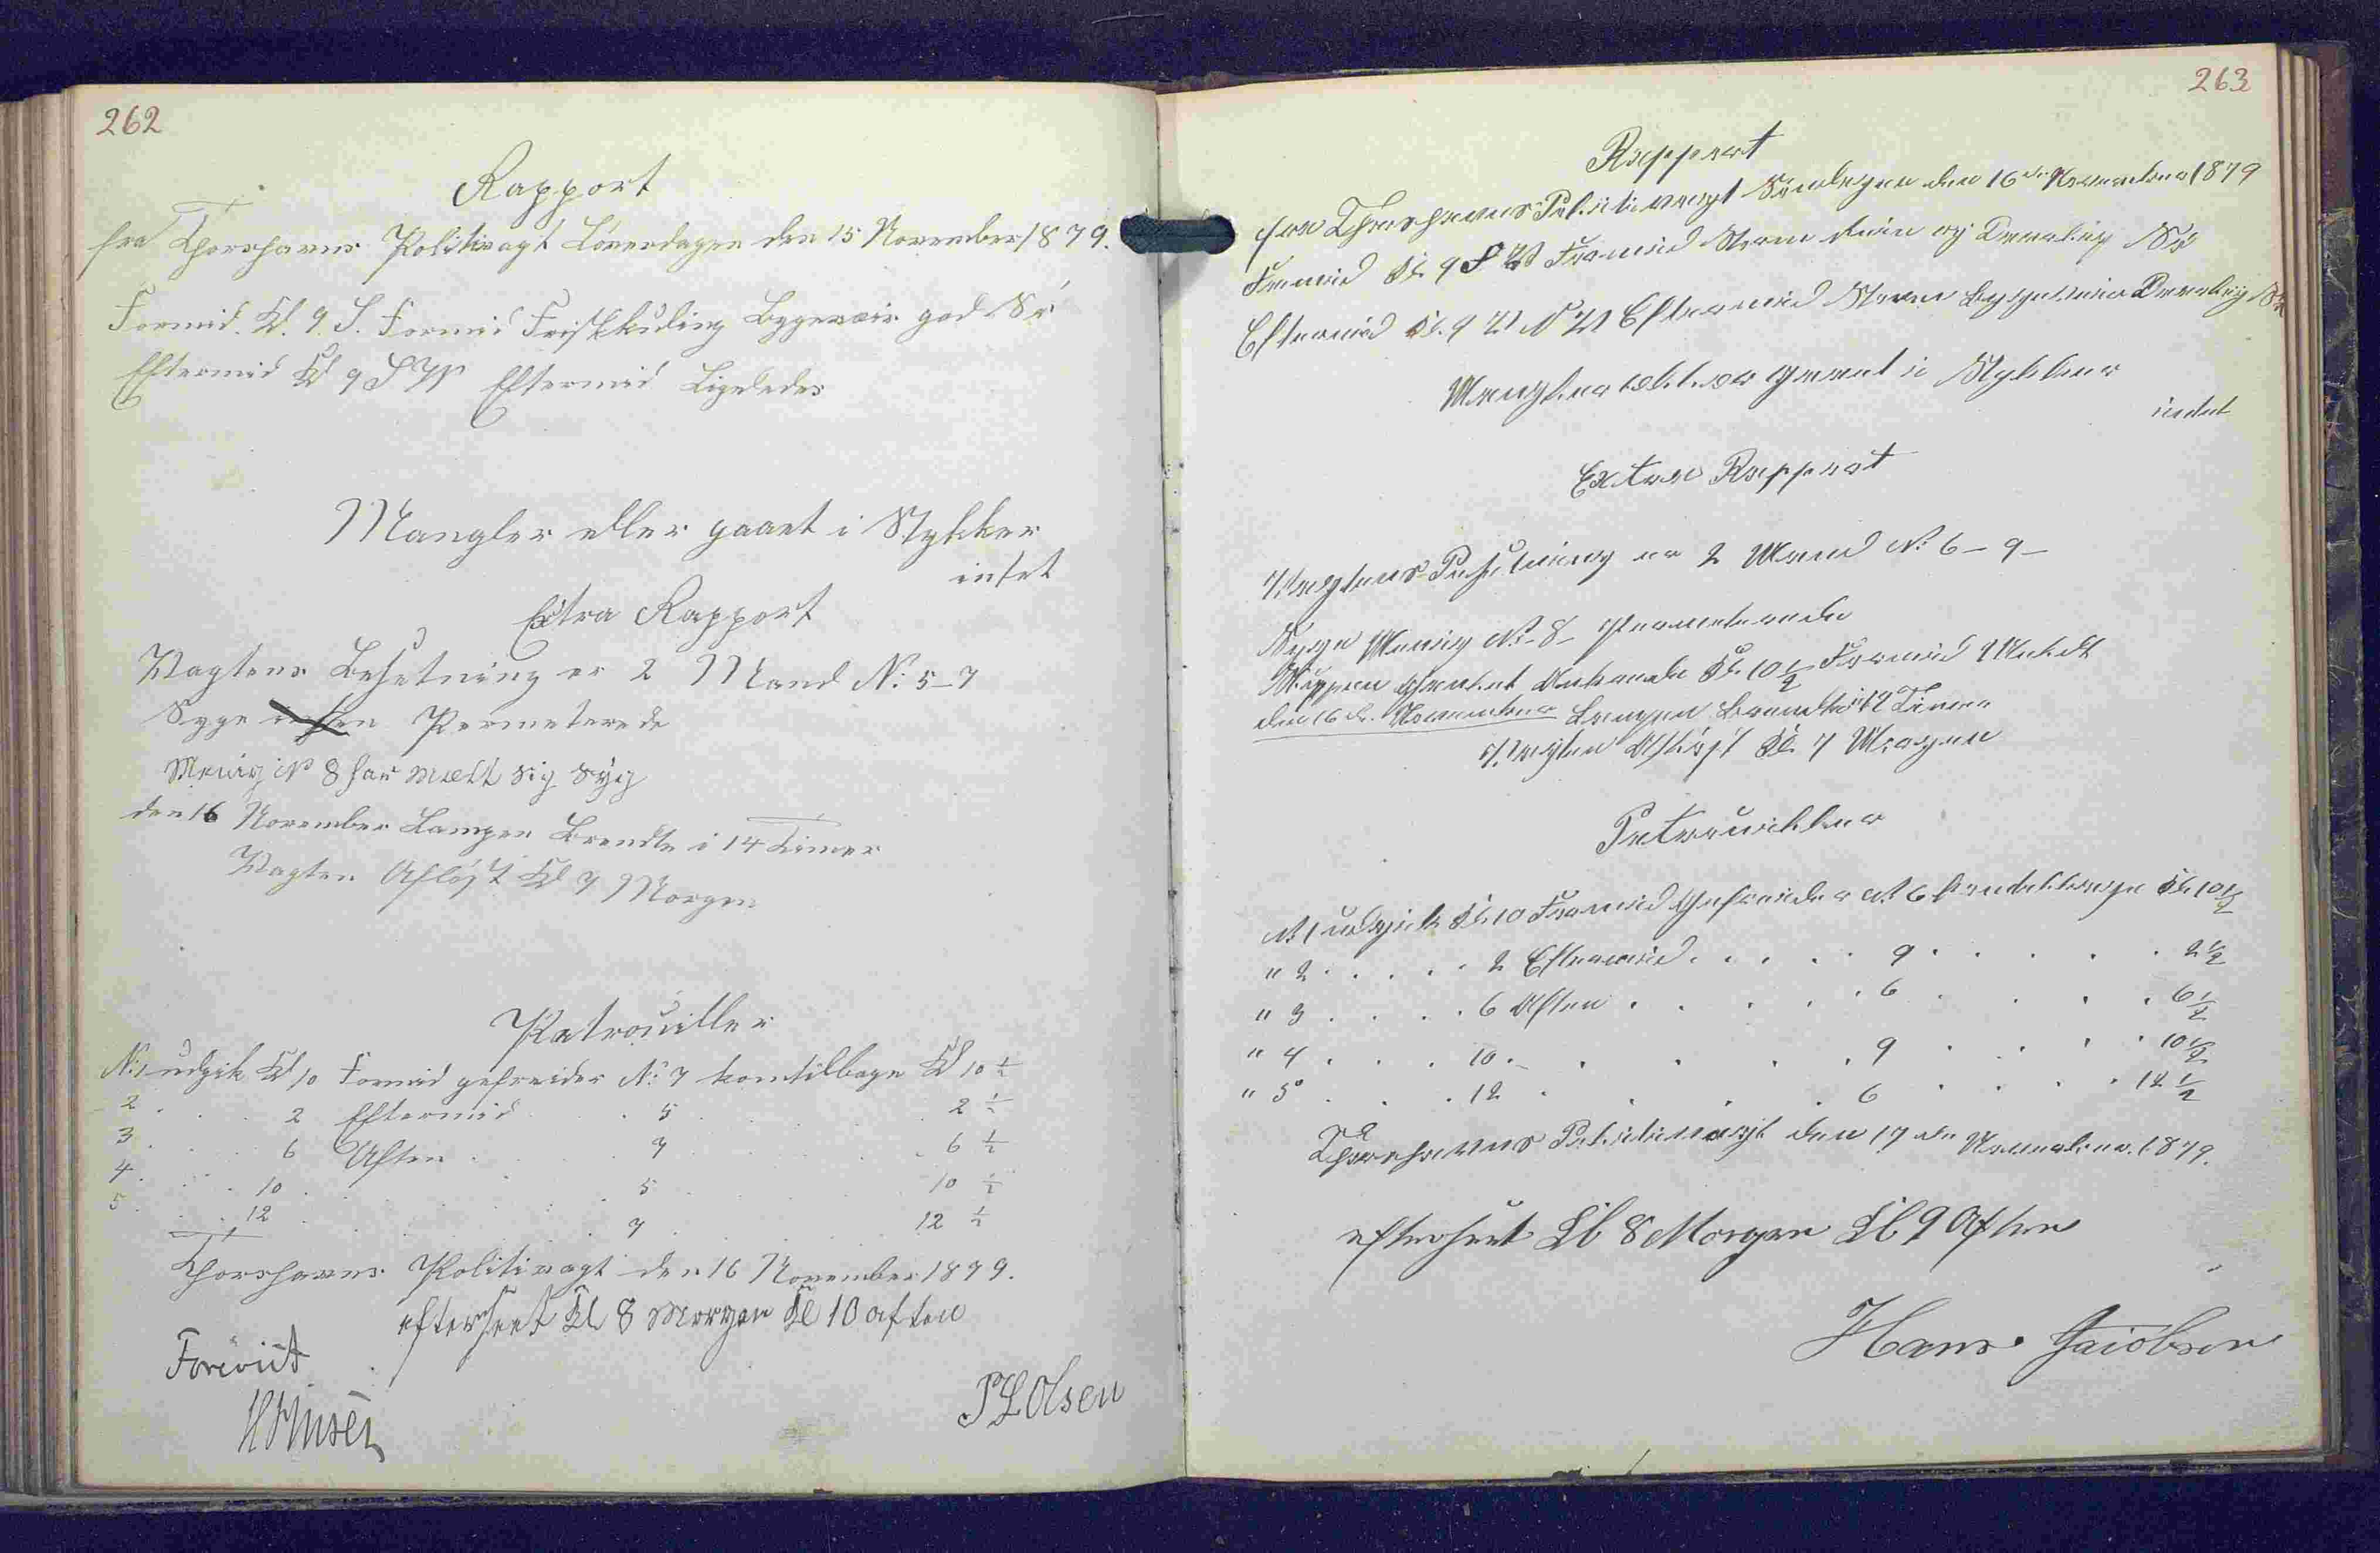 262
Rapport
fra Thorshavns Politivagt Löverdagen den 15 November 1879.
Formid. Kl. 9. S. Formid Friskkuling Bygeveir god Sö
Eftermid Kl 9 S W Eftermid Ligeledes
Mangler eller gaaet i Stykker
intet
Extra Rapport
Vagtens Besetning er 2 Mand N: 5-7
Syge ingen Permeterede
Menig N 8 har mælt sig syg
den 16 November Lampen Brendte i 14 Timer
Vagten Aflöst Kl 7 Morgen
Patrouiller
N: 1 udgik Kl 10 Formid gefreider N: 7 kom tilbage Kl 10 1/2
2 . . . 2 Eftermid . . 5 . . 2 1/2
3 . . . 6 Aften . . 7 . . 6 1/2
4 . . . 10 . . 5 . . 10 1/2
5 . . . 12 . . 7 . . 12 1/2
Thorshavns Politivagt den 16 November 1879.
efterseet Kl 8 Morgen Kl 10 aften
Forevist
P L Olsen
263
Rapport
fra Thorshavns Politivagt Söndagen den 16de November 1879
Formid Kl. 9 S W Formid Storm og Daarlig Sö
Eftermid Kl. 9 V N W Eftermid Storm Bygeveir Daarlig Sö
Mangler eller gaaet i Stykker
intet
Extra Rapport
Vagtens Besetning er 2 Mand N: 6-9-
Syge Menig N: 8- Permeterede
Kl. 10 1/2 Formid
den 16de November Lampen Brendte i 12 Timer
Vagten Aflöst Kl 7 Morgen
Patrouiller
N: 1 udgik Kl. 10 Formid Gefreider N: 6 kom tilbage Kl. 10 1/2
" 2 . . . . . 2 Eftermid . . . . . 9 . . . . . 2 1/2
" 3 . . . . 6 Aften . . . . . 6 . . . . 6 1/2
" 4 . . . 10 . . . . . 9 . . . . 10 1/2
" 5 . . . 12 . . . . 6 . . . . 12 1/2
Thorshavns Politivagt den 17de November 1879.
efterseet Kl 8 Morgen Kl 9 Aften
Hans Jacobsen